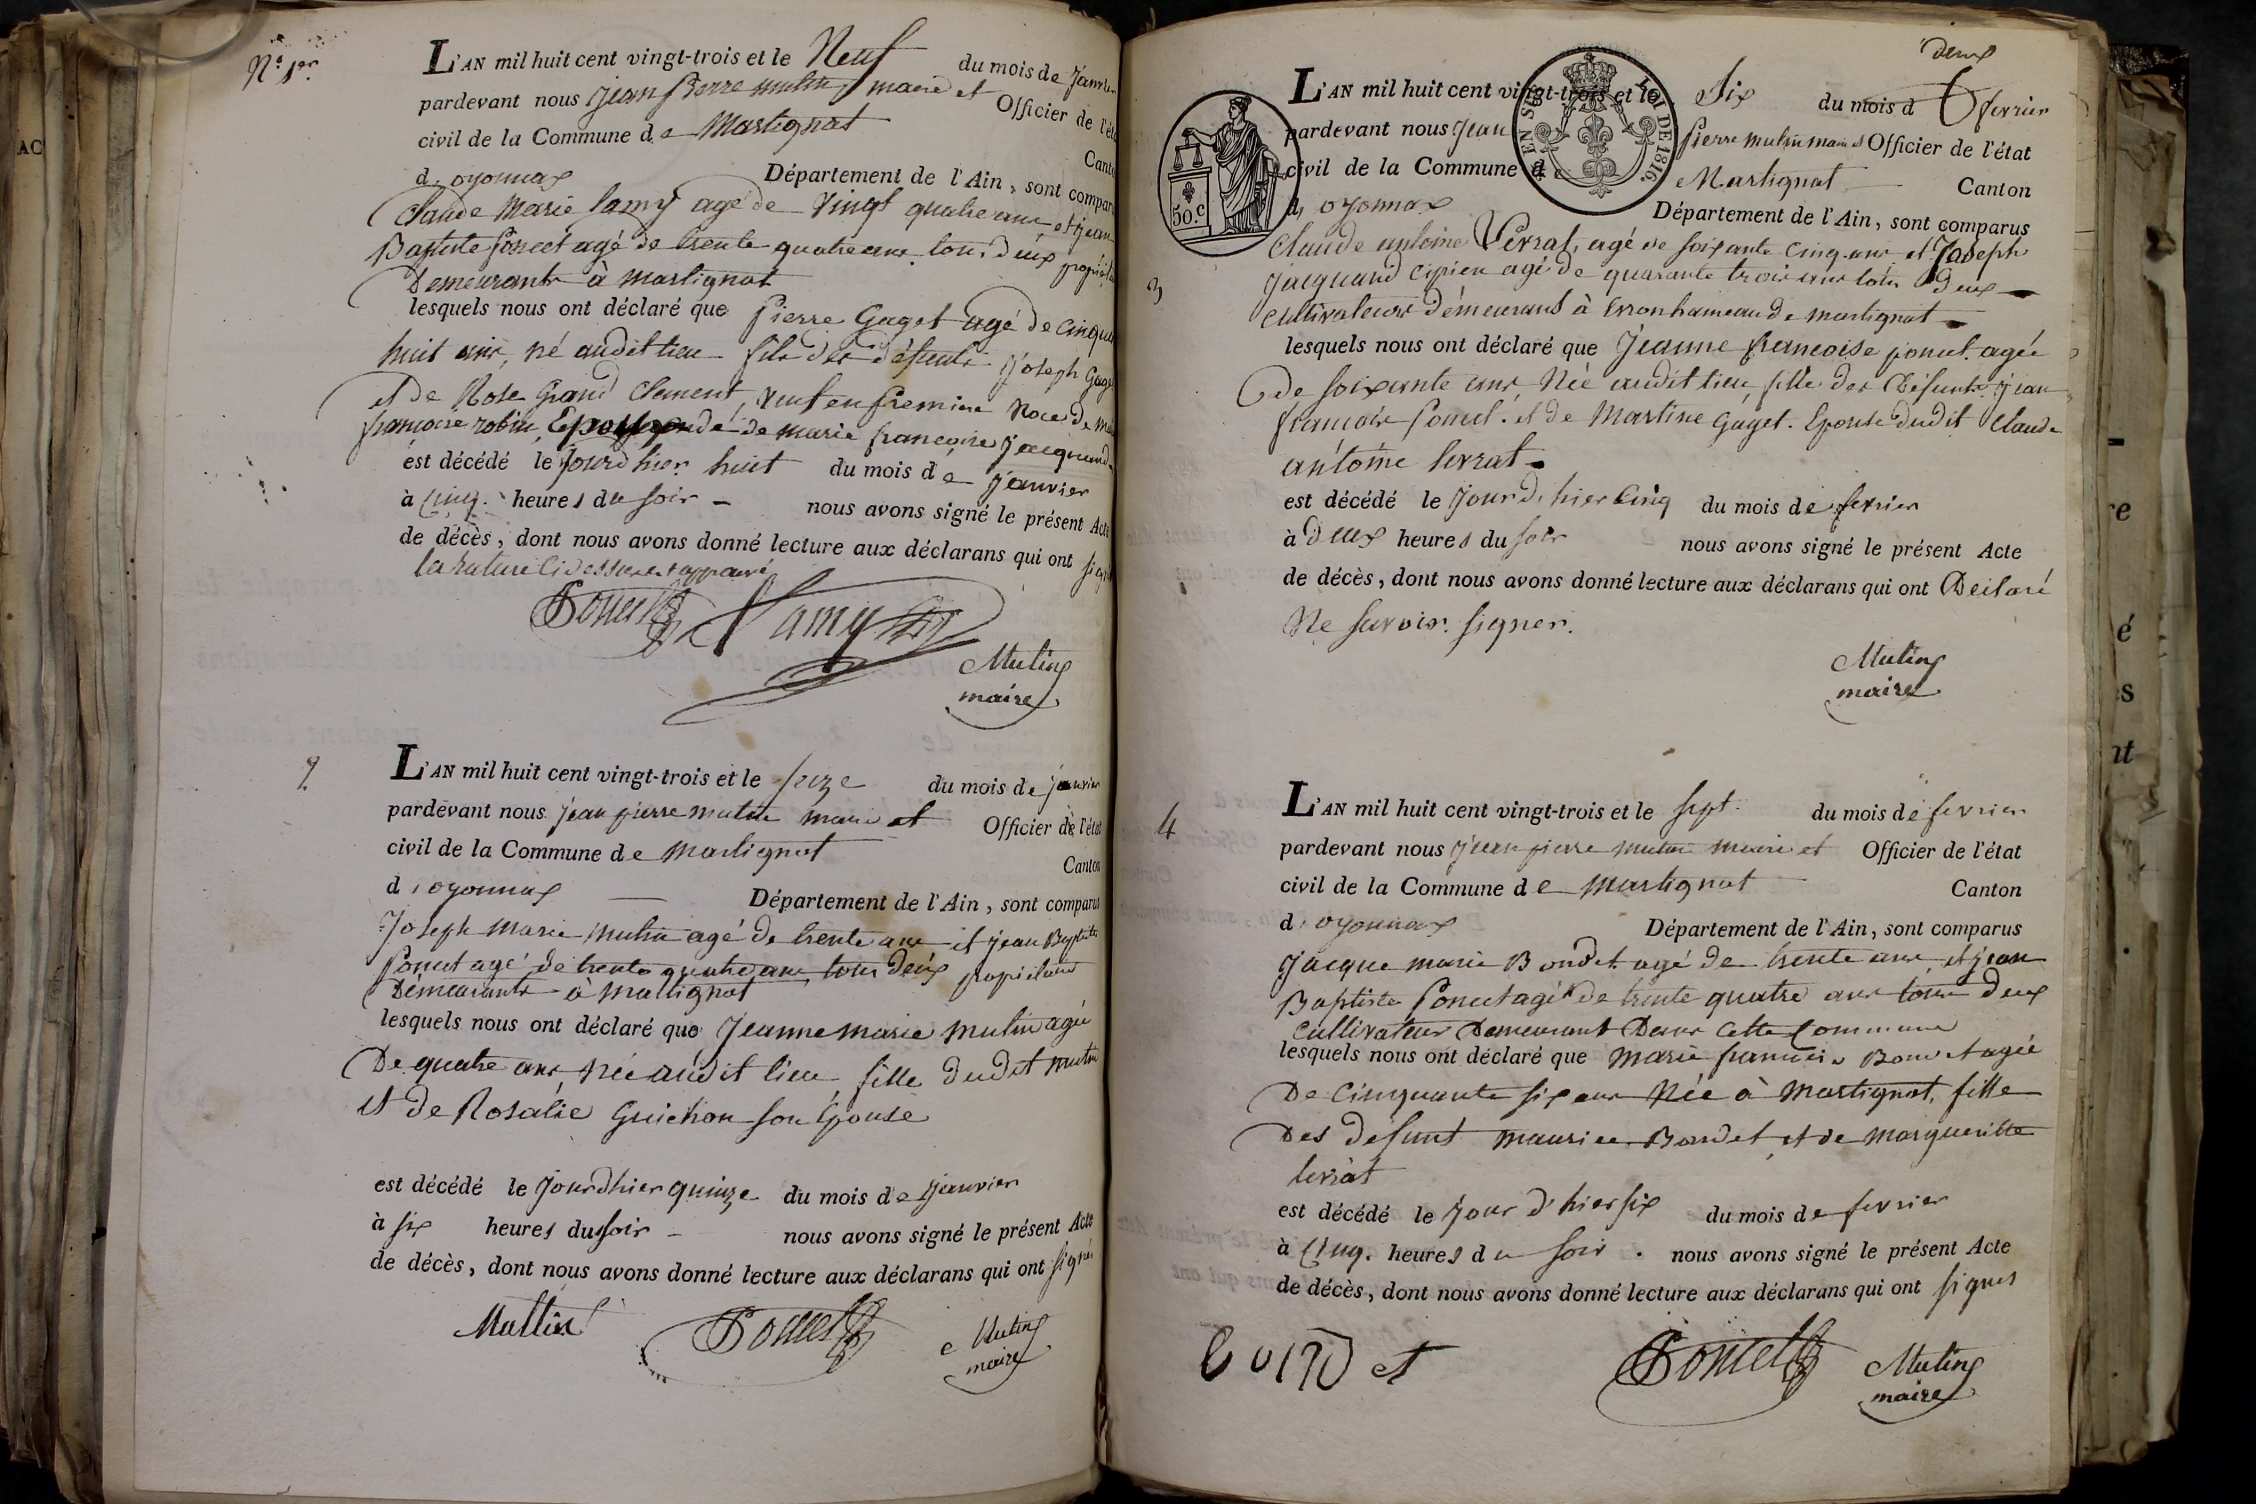 N.º 1er
L'AN mil huit cent vingt-trois et le Neuf du mois de Janvier
pardevant nous Jean Pierre mutin maire et Officier de l'état
civil de la Commune de Martignat Canton
d'oyonnax Département de l'Ain, sont comparus
Claude Marie lamy agé de Vingt quatre ans et Jean
Baptiste Poncet agé de trente quatre ans tous deux
Demeurants à Martignat
lesquels nous ont déclaré que Pierre Gaget agé de Cinquante
huit ans, né audit lieu fils des défunts Joseph Gaget
et de Rose Grand Clement, veuf en Premiere Noce de
francoise robin, de marie francoise Jacquand
est décédé le Jourd'hier huit du mois de Janvier
à Cinq heures du soir - nous avons signé le présent Acte
de décès, dont nous avons donné lecture aux déclarans qui ont signé
la rature Ci dessus est approuvé
Poncet Lamy Mutin
maire
2
L'AN mil huit cent vingt-trois et le seize du mois de janvier
pardevant nous jean pierre mutin maire et Officier de l'état
civil de la Commune de Martignat Canton
d'oyonnax Département de l'Ain, sont comparus
Joseph Marie Mutin agé de trente ans et jean Baptiste
Poncet agé de trente quatre ans tous deux propriétaires
Demeurants à Martignat
lesquels nous ont déclaré que Jeanne marie Mutin agée
De quatre ans, née audit lieu fille dudit Mutin
et de Rosalie Guichon son Epouse
est décédé le Jourdhier quinze du mois de Janvier
à six heures du soir - nous avons signé le présent Acte
de décès, dont nous avons donné lecture aux déclarans qui ont signés
Muttin Poncet Mutin
maire
deux
50.c
EN SUS
LOI DE 1816.
3
L'AN mil huit cent vingt-trois et le Six du mois d fevrier
pardevant nous Jean Pierre mutin maire et Officier de l'état
civil de la Commune de Martignat Canton
d'oyonnax Département de l'Ain, sont comparus
Claude antoine Verrat, agé de soixante Cinq ans et Joseph
Jacquand Cipien agé de quarante trois ans tous deux
Cultivateurs démeurans à Erron hameau de Martignat
lesquels nous ont déclaré que Jeanne francoise poncet agée
de soixante ans Née audit lieu, fille des Défunts Jean
francois Poncet. et de Martine Gaget. Epouse dudit Claude
antoine Verrat
est décédé le Jour d'hier Cinq du mois de fevrier
à Deux heures du soir nous avons signé le présent Acte
de décès, dont nous avons donné lecture aux déclarans qui ont Declaré
Ne savoir signer.
Mutin
maire
4
L'AN mil huit cent vingt-trois et le sept du mois de fevrier
pardevant nous Jean pierre mutin maire et Officier de l'état
civil de la Commune de Martignat Canton
d'oyonnax Département de l'Ain, sont comparus
Jacque marie Bondet agé de trente ans et Jean
Baptiste Poncet agé de trente quatre ans tous deux
Cultivateur Demeurant Dans Cette Commune
lesquels nous ont déclaré que Marie francoise Bondet agée
De Cinquante six ans Née à Martignat, fille
Des defunt Maurice Bondet, et de Margueritte
levrat
est décédé le Jour d'hier six du mois de fevrier
à Cinq heures du soir. nous avons signé le présent Acte
de décès, dont nous avons donné lecture aux déclarans qui ont signés
Poncet Mutin
maire